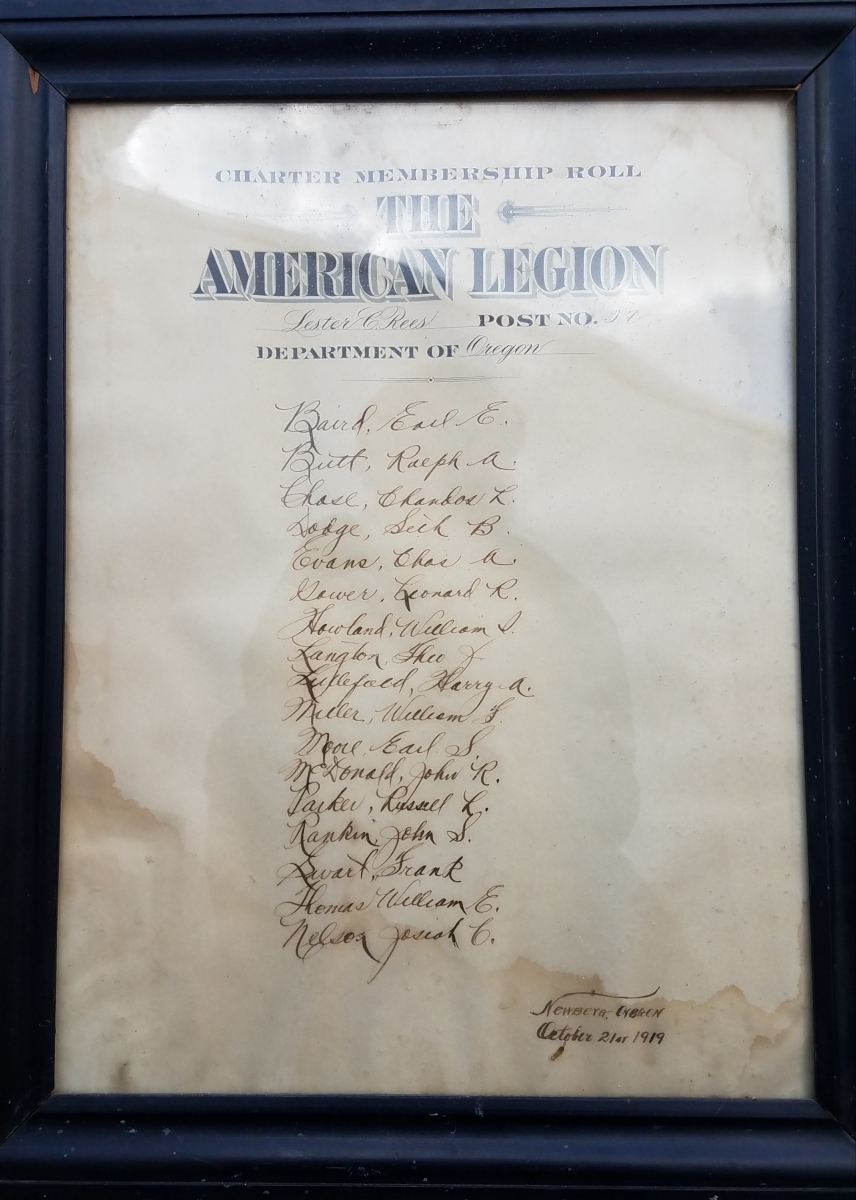 CHARTER MEMBERSHIP ROLL
THE
AMERICAN LEGION
Lester C. Rees POST NO. 57
DEPARTMENT OF Oregon
Baird, Earl E.
Butt, Ralph A.
Chase, Chandos L.
Dodge, Seth B.
Evans, Chas A.
Gower, Leonard R.
Howland, William S.
Langton, Theo
Littlefield, Harry A.
Miller, William F.
Moore, Earl S.
McDonald, John R.
Parker, Russell L.
Rankin, John S.
Swart, Frank
Thomas William E.
Nelson, Josiah C.
Newberg, Oregon
October 21st 1919